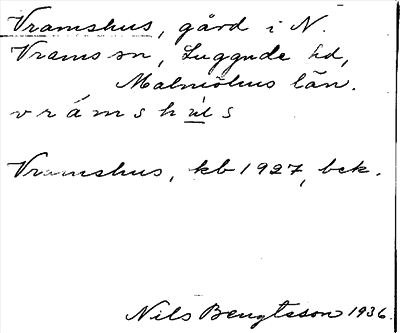 Vramshus, gård i N.
Vrams sn, Luggude hd,
Malmöhus län.
vrámshùs
Vramshus, kb 1927, bek.
Nils Bengtsson 1936